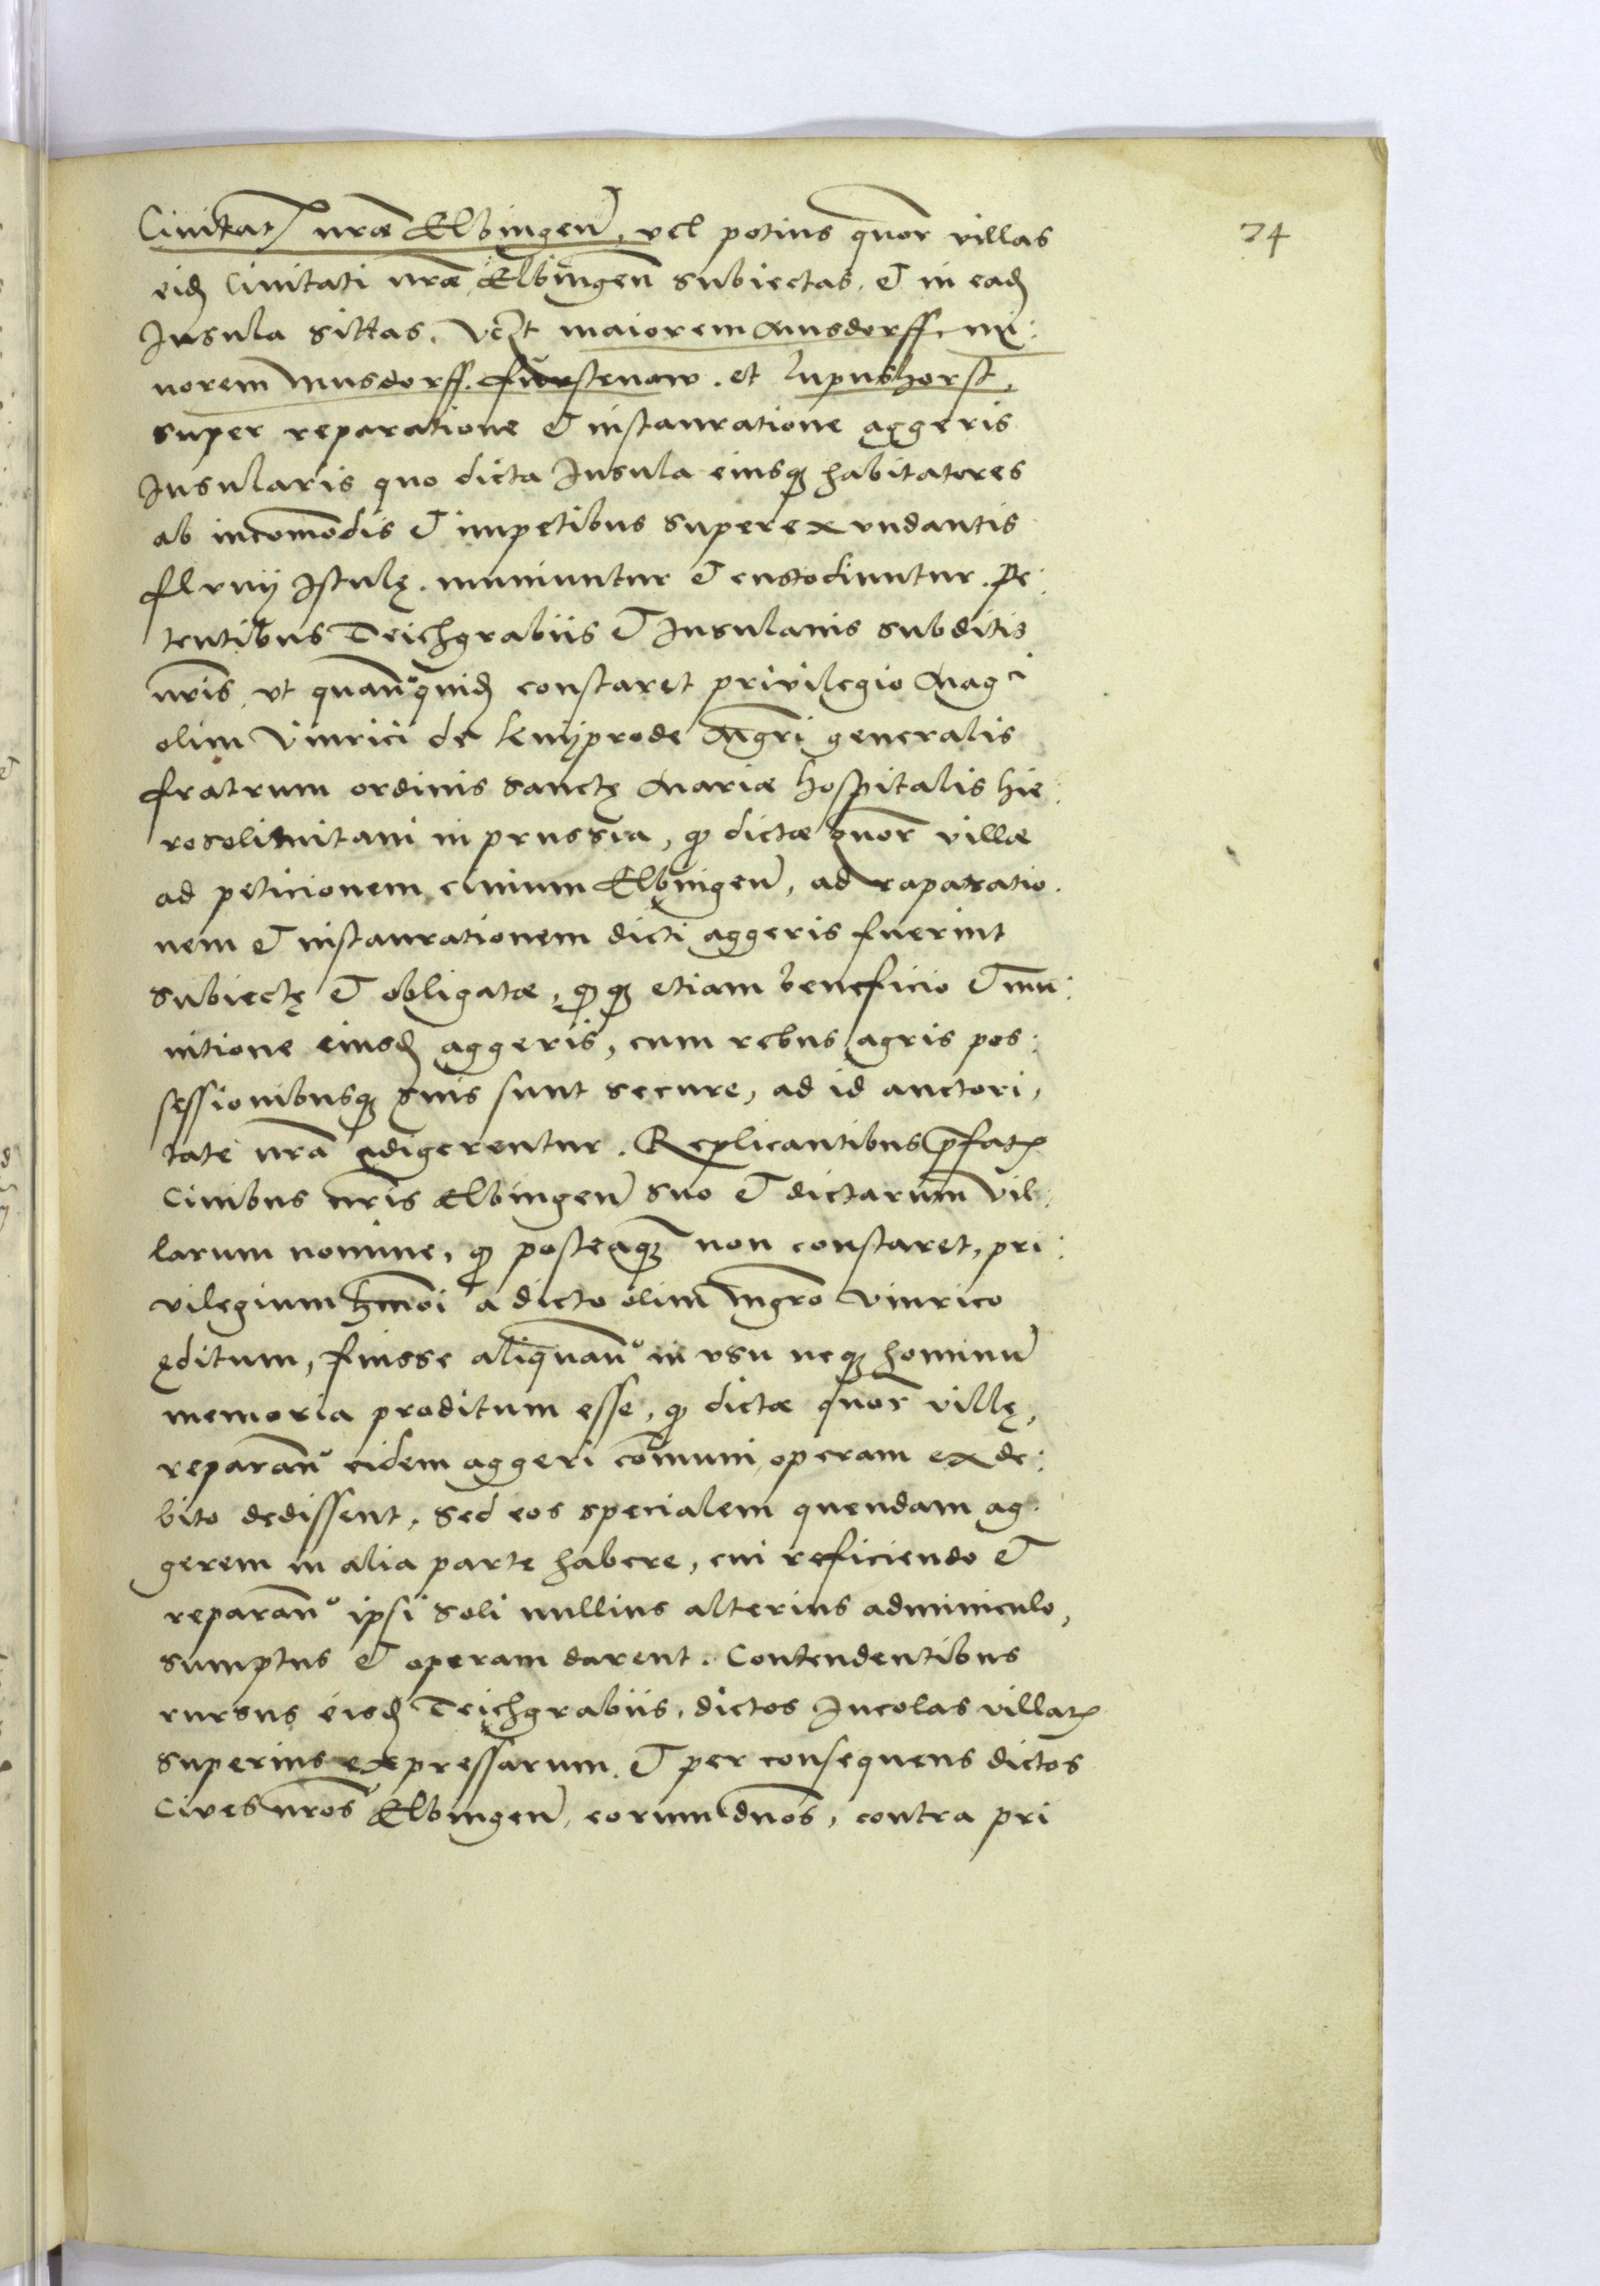 Civitat(is) nrae Elbingen, vel potius quor villas
74
eid Civitati nrae Elbingen subiectas. et in ead
Insula sittas. Vczt maiorem Ausdorff, mi:
norem Musdorff. Furstenaw. et Lupushorst,
super reparatione et instauratione aggeris
Insularis quo dicta Insula eiusq habitatores
ab incomodis et impetibus superexundantis
fluvij Istulę. muniuntur et custodiuntur. Pe:
tentibus Teichgrabiis et Insulanis subditis
nris, vt quanoquid constaret privilegio Magci
olim Vinrici de Kenijprode Mgri generalis
fratrum ordinis sanctę Mariae hospitalis hie:
rosolimitani in prussia, q dictae quor villae
ad peticionem civium Elbingen, ad raparatio.
nem et instaurationem dicti aggeris fuerint
subiectę et obligatae, q q etiam beneficio et mu:
nitione eiusd aggeris, cum rebus agris pos:
sessionibusq suis sunt secure, ad id auctori,
tate nra adigerentur. Replicantibus pfat
Civibus nris Elbingen suo et dictarum vil:
larum nomine, q posteaq non constaret, pri:
vilegium hmoi a dicto olim mgro Vinrico
ęditum, fuisse aliquano in vsu neq hominu
memoria proditum esse, q dictae quor villę,
reparano eidem aggeri comuni operam ex de:
bito dedissent, sed eos specialem quendam ag:
gerem in alia parte habere, cui reficiendo et
reparano ipsi soli nullius alterius adminiculo,
sumptus et operam darent. Contendentibus
rursus eisd Teichgrabiis, dictos Incolas villar
superius expressarum. et per consequens dictos
Cives nros Elbingen, eorum dnos, contra pri